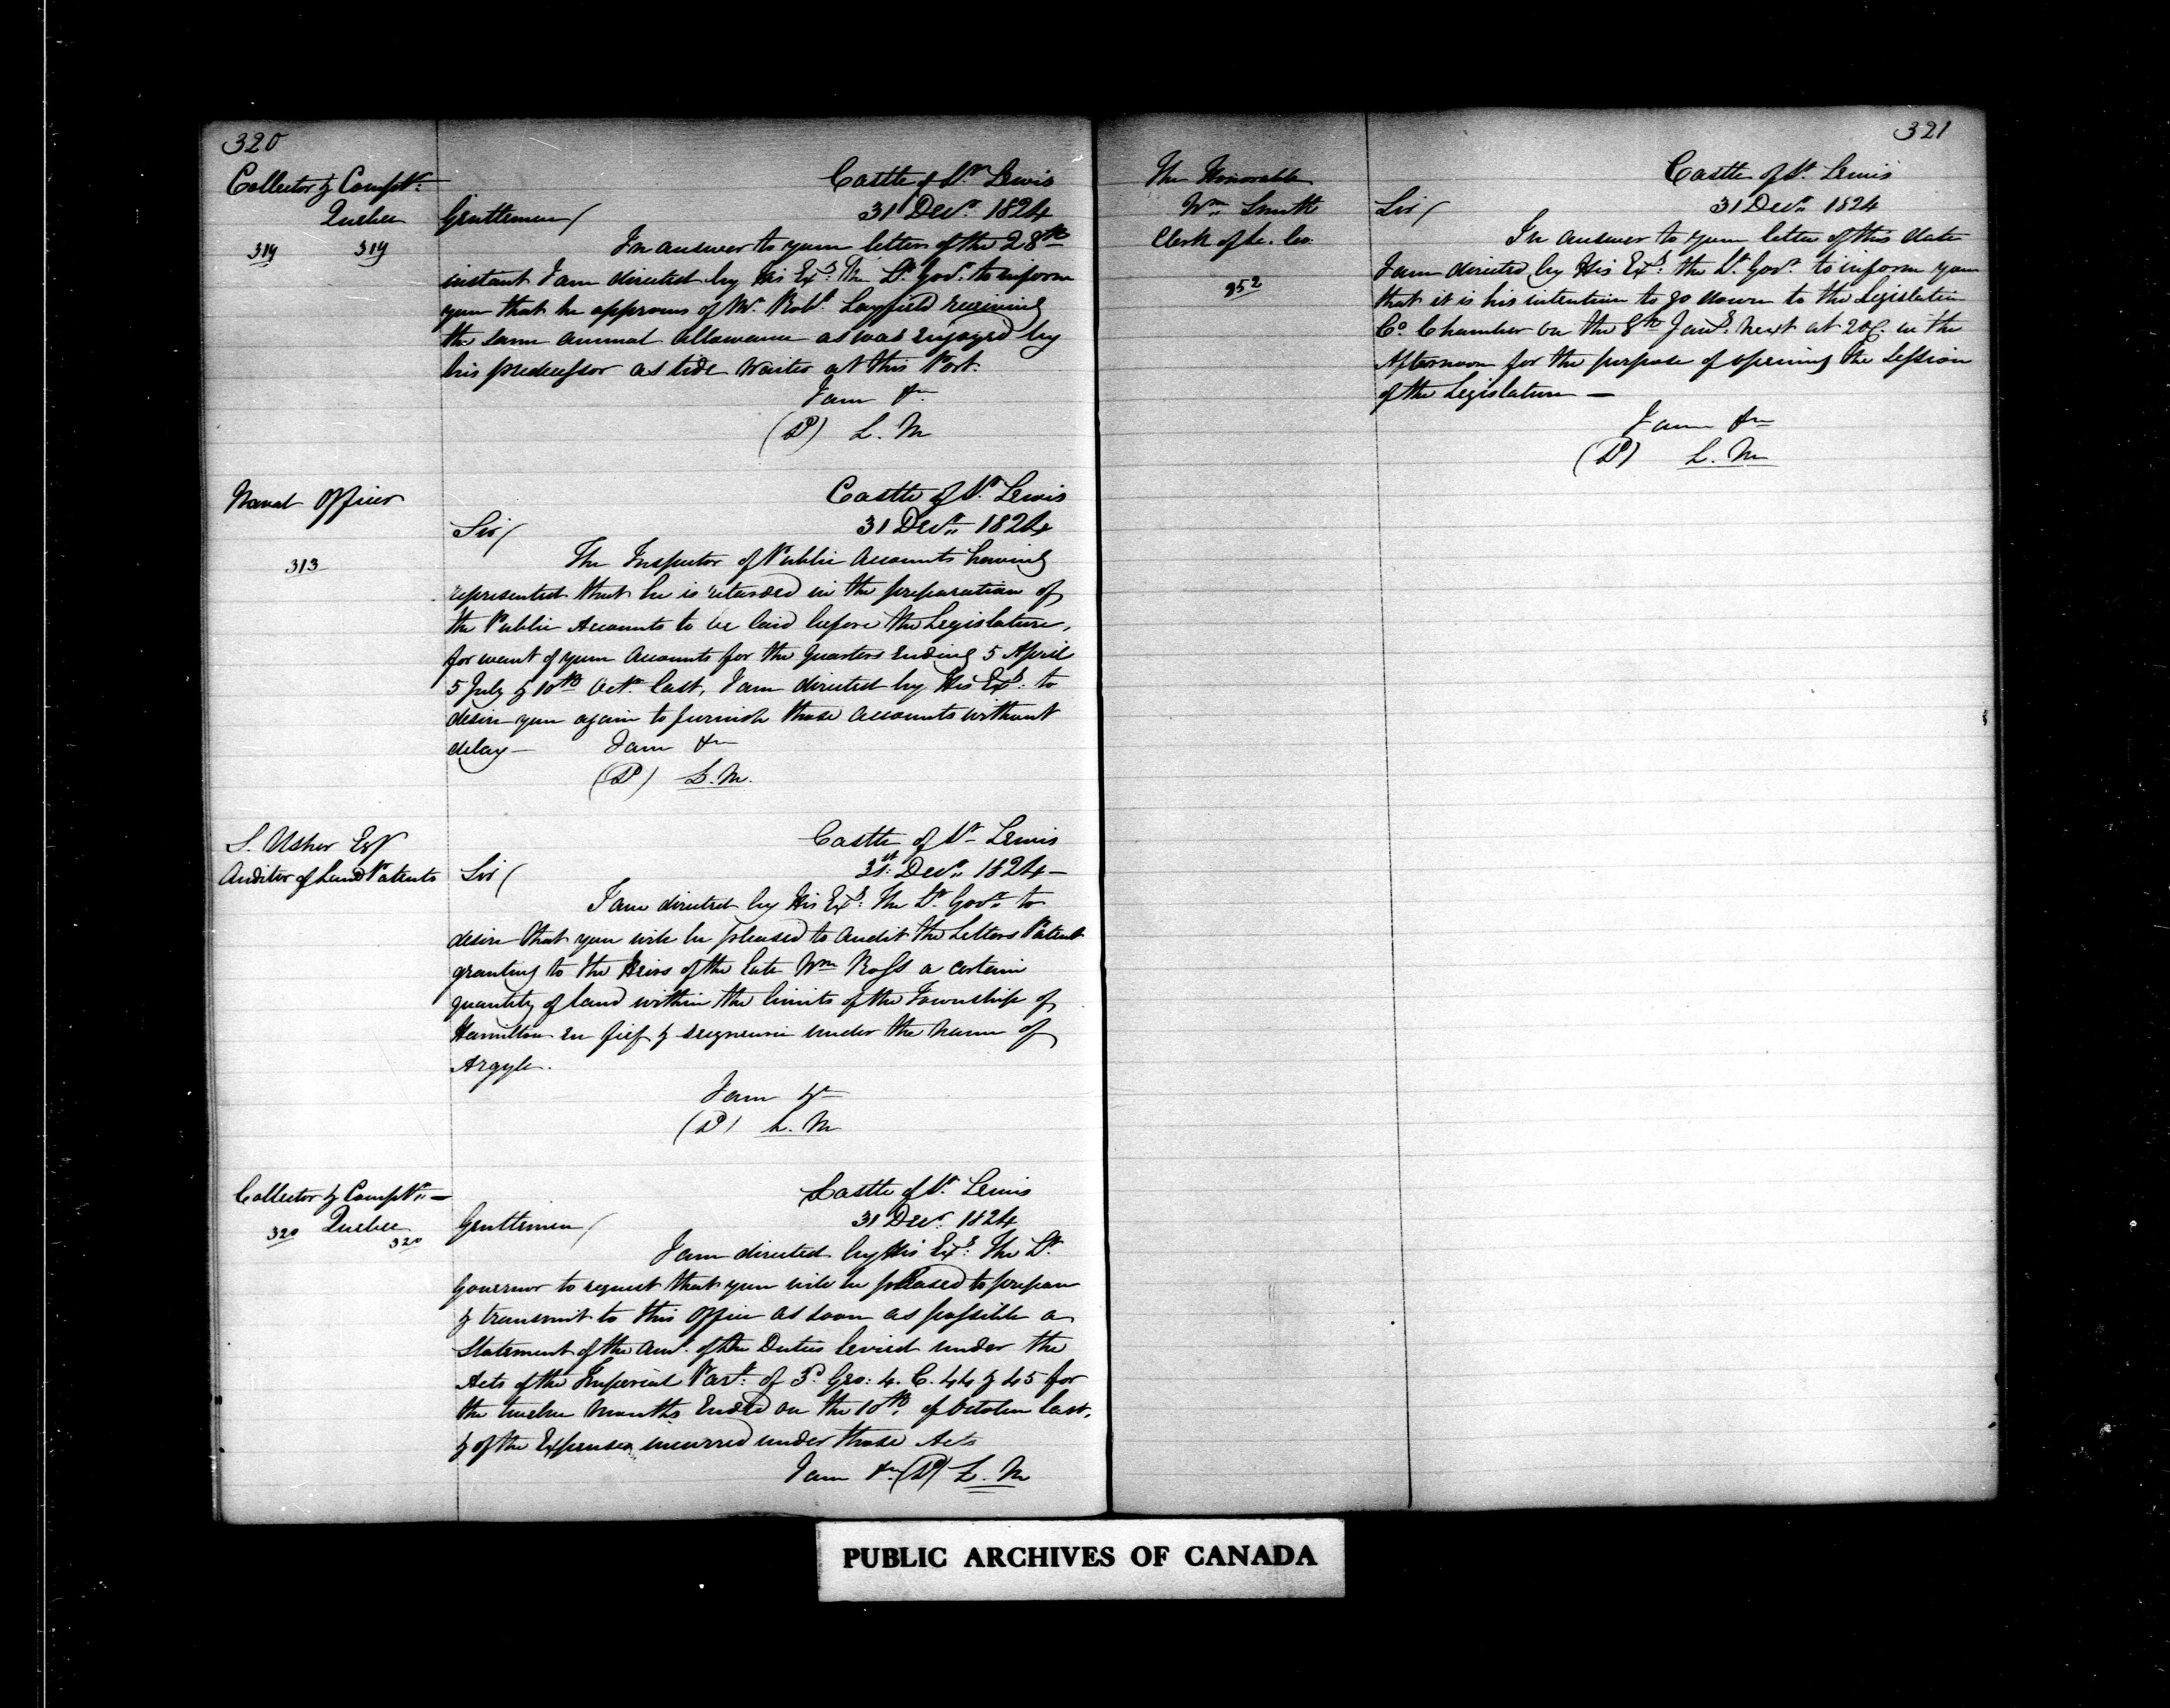 320
Collector & Compt^r:
Quebec
319 319
Castle of S^t. Lewis
31 Dec^r. 1824
Gentlemen/
In answer to your letter of the 28^th
instant I am directed by His Ex^y: The L^t. Gov^r. to inform
you that he approves of M^r. Rob^t. Layfield receiving
the same annual allowance as was enjoyed by
his predecessor as tide Waiter at this Port.
I am &c
(S^d) L. M
Naval Officer
313
Castle of S^t. Lewis
31 Dec^r. 1824
Sir/
The Inspector of Public Accounts having
represented that he is retarded in the preparation of
the Public Accounts to be laid before the Legislature,
for want of your Accounts for the Quarters Ending 5 April
5 July & 10^th Oct^r. last, I am directed by His Ex^y: to
desire you again to furnish those Accounts without
delay—
I am &c
(S^d) L. M.
Usher Esq^r
Auditor of Land Patents
Castle of S^t Lewis
31^st: Dec^r. 1824—
Sir/
I am directed by His Ex^y: The L^t. Gov^r. to
desire that you will be pleased to Audit the Letters Patent
granting to the Heirs of the late W^m Ross a certain
quantity of land within the limits of the Township of
Hamilton en fief & seigneurie under the name of
Argyle.
I am &c
(S^d) L. M
Collector & Compt^r.—
Quebec
320 320
Castle of S^t. Lewis
31 Dec^r. 1824
Gentlemen/
I am directed by His Ex^y: The L^t.
Governor to request that you will be pleased to prepare
& transmit to this Office as soon as possible a
Statement of the am^t. of the Duties levied under the
Acts of the Imperial Parl^t: of 3^d Geo: 4. C. 44 & 45 for
the twelve Months Ended on the 10^th. of October last,
& of the Expenses incurred under those Acts
I am &c (S^d) L. M
321
The Honorable
W^m. Smith
Clerk of Le. Co.
Castle of S^t. Lewis
31 Dec^r. 1824
Sir/
In answer to your letter of this date
I am directed by His Ex^y: the L^t. Gov^r. to inform you
that it is his intention to go down to the Legislative
C^o. Chamber on the 8^th Jan^y. next at 2 o'C. in the
Afternoon for the purpose of opening the Session
of the Legislature —
I am &c
(S^d) L. M
PUBLIC ARCHIVES OF CANADA